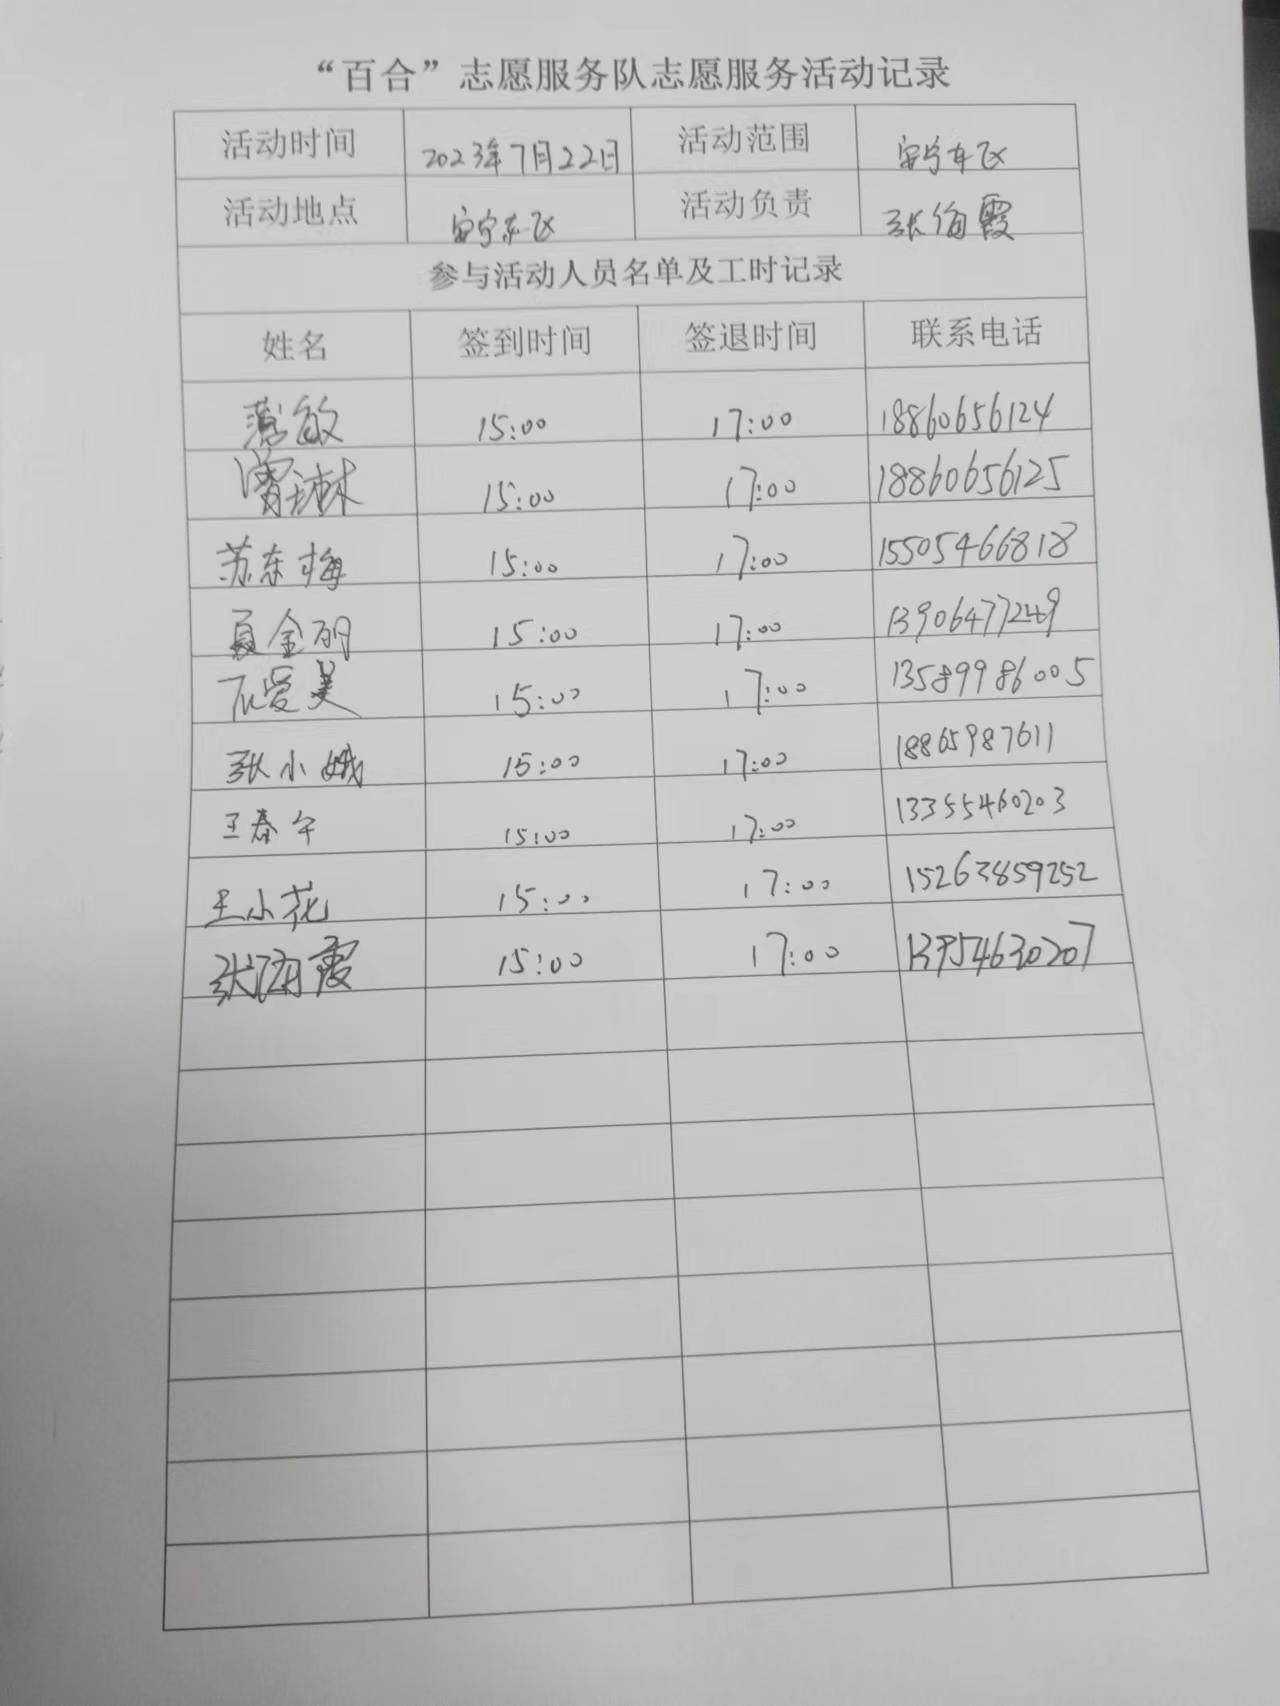 “百合”志愿服务队志愿服务活动记录
活动时间 2023年7月22日 活动范围 安宁东区
活动地点 安宁东区 活动负责 张海霞
参与活动人员名单及工时记录
姓名 签到时间 签退时间 联系电话
敏 15:00 17:00 18860656124
15:00 17:00 18860656125
苏东梅 15:00 17:00 15505466818
夏金 15:00 17:00 13906477249
爱美 15:00 17:00 13589986005
张小娥 15:00 17:00 18865987611
王春 15:00 17:00 13355460203
王小花 15:00 17:00 15263859252
张海霞 15:00 17:00 13954630207